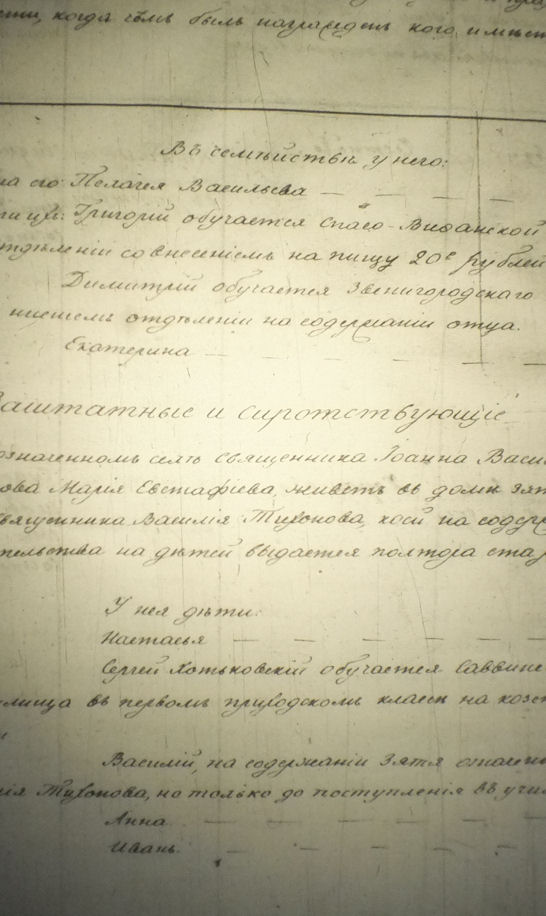 сти, когда чѣмъ былъ награжденъ кого имѣет
Въ семействѣ у него:
на его: Пелагея Васильева — — — —
Григорій обучается Спасо-Виѳанской
тдѣленіи со внесеніемъ на пищу 20ᵉ рублей
Димитрій обучается Звенигородскаго
нисшемъ отдѣленіи на содержаніи отца.
Екатерина — — — —
Заштатные и сиротствующіе
означенномъ селѣ священника Іоанна Васи
ова Марія Евстафіева, живетъ въ домѣ зят
священника Василія Тихонова, коей на содерж
тельства на дѣтей выдается полтора ста р
У нея дѣти:
Настасья — — — — —
Сергей Хотьковскій обучается Саввине
илища въ первомъ приходскомъ классѣ на козен
Василій, на содержаніи зятя означен
ия Тихонова, но только до поступленія въ учи
Анна — — — — —
Иванъ — — — — —